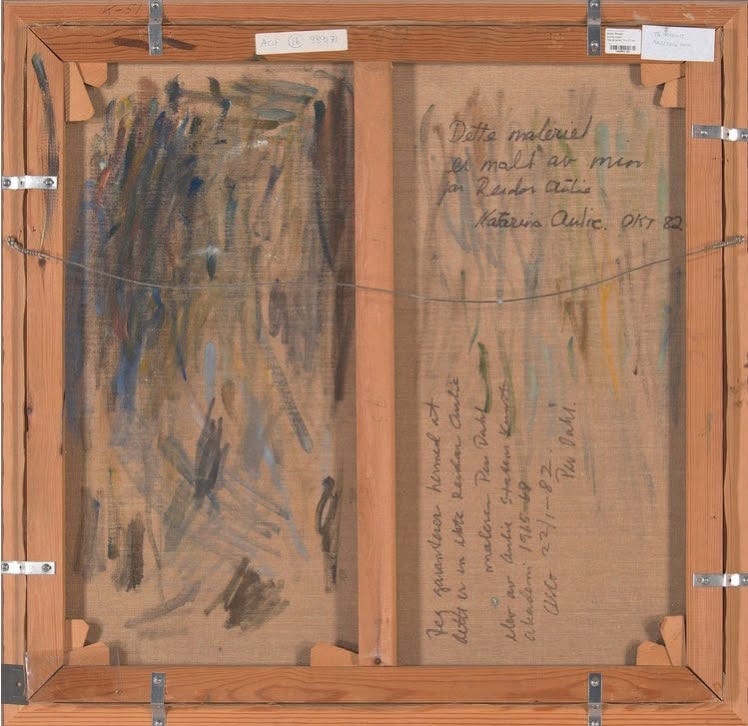 K-51
ACF 16 989/71
Dette maleriet
er malt av min
far Reidar Aulie
Katarina Aulie. OKT 82
Jeg garanterer hermed at
dette er en ekte Reidar Aulie
maleren Per Dahl
elev av Aulie Statens Kunst-
akademi 1965-68
Oslo 22/1-82.
Per Dahl.